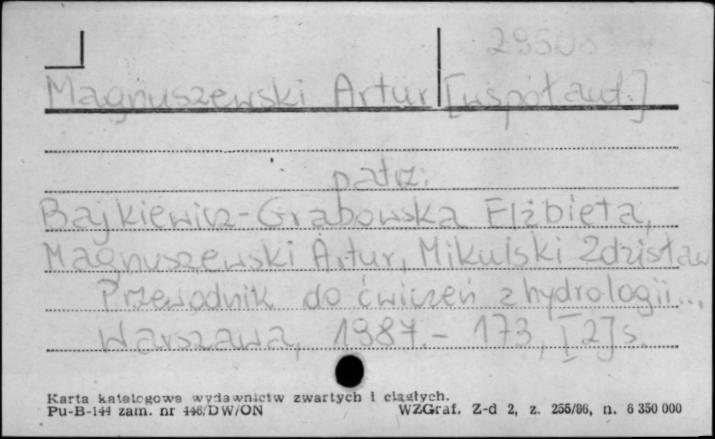 29508
Magnuszewski Artur [współaut.]
patrz:
Bajkiewicz-Grabowska Elżbieta,
Magnuszewski Artur, Mikulski Zdzisław
Przewodnik do ćwiczeń z hydrologii...,
Warszawa, 1987.- 173, [2] s.
Karta katalogowa wydawnictw zwartych i ciągłych.
Pu-B-144 zam. nr 446/DW/ON WZGraf. Z-d 2, z. 255/86, n. 6 350 000